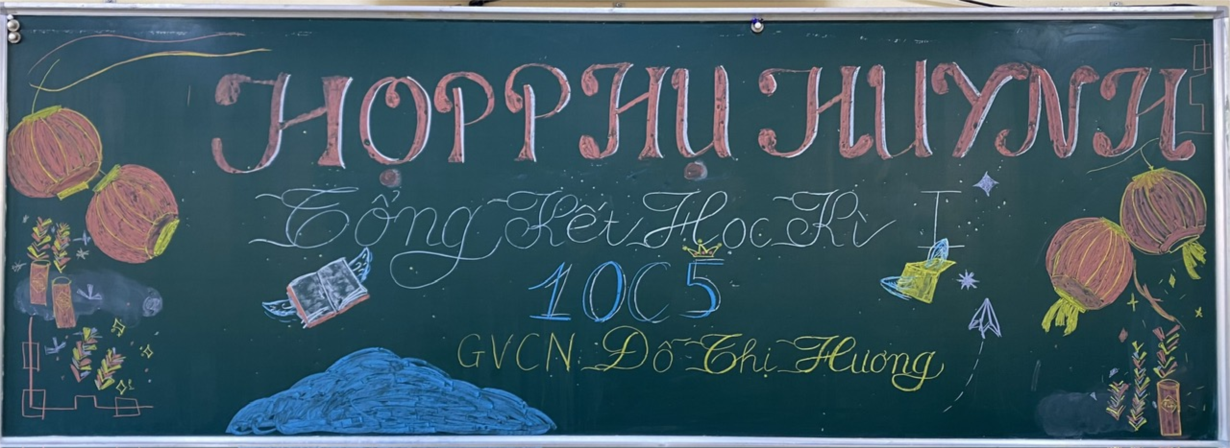 HỌP PHỤ HUYNH
Tổng Kết Học Kì I
10C5
GVCN: Đỗ Thị Hương